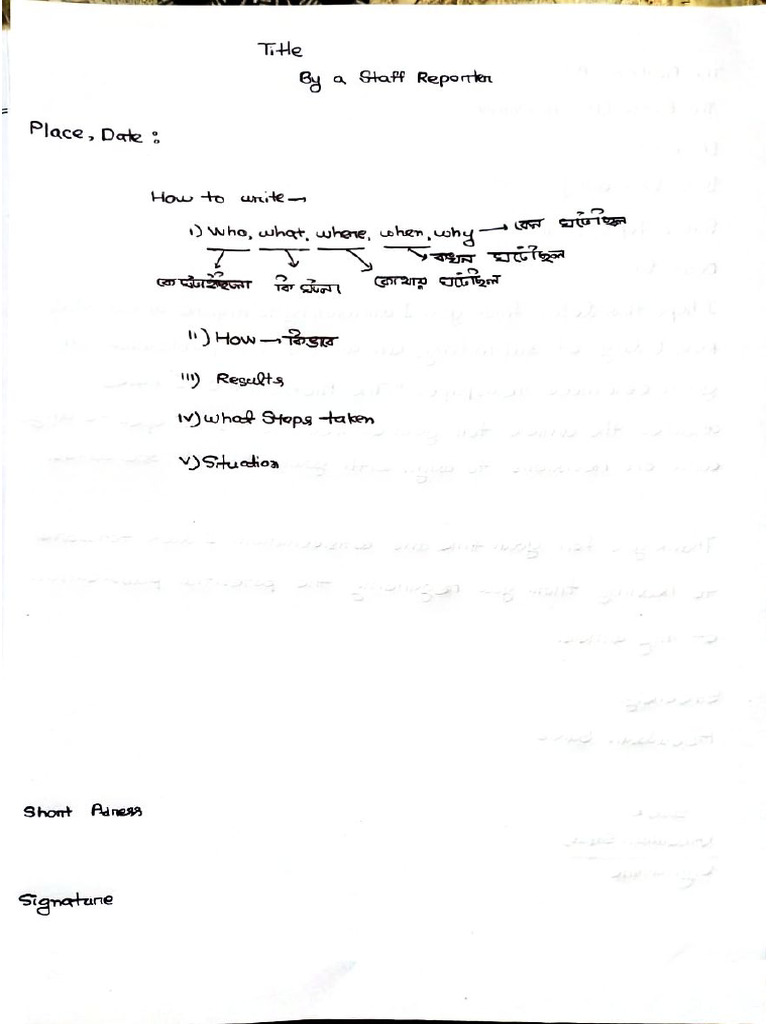 Title
By a Staff Reporter
Place, Date :
How to write →
i) Who, what, where, when, why → কেন ঘটেছিল
কখন ঘটেছিল
কি ঘটনা কোথায় ঘটেছিল
ii) How → কিভাবে
iii) Results
iv) What Steps taken
v) Situation
Short Adress
Signature